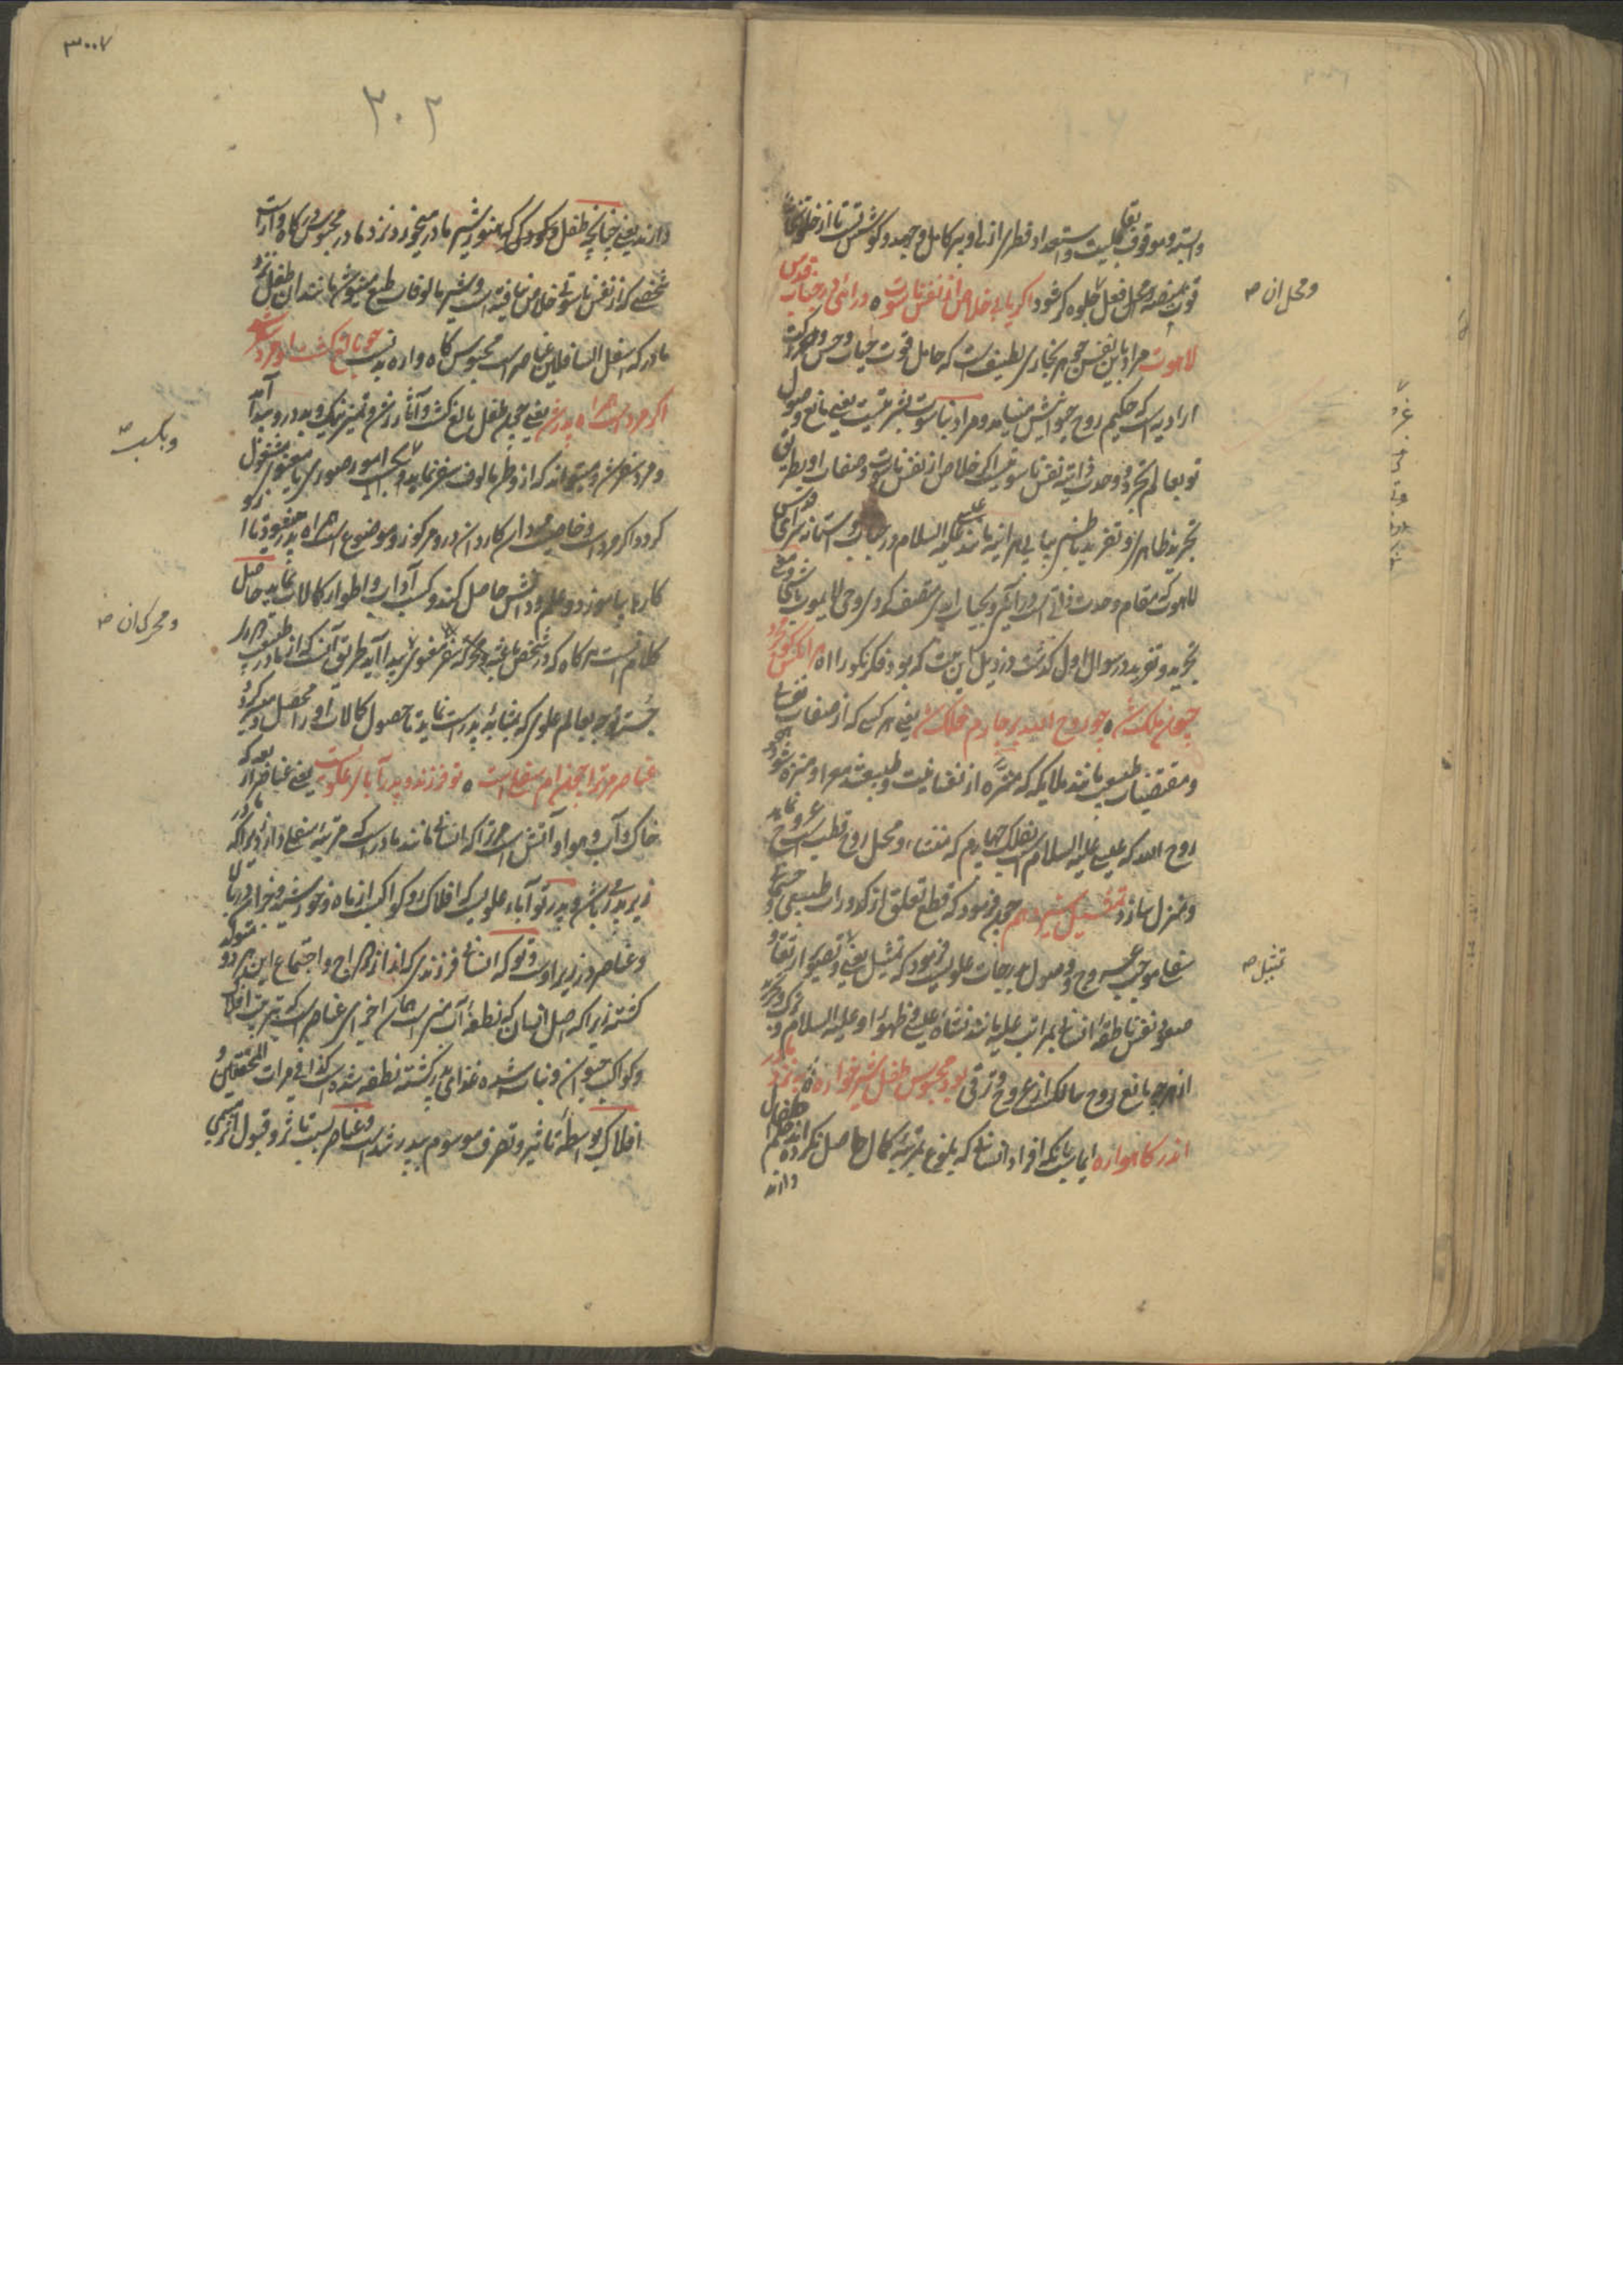 وابسته و موقوف بقابلیت و استعداد فطری ازلی او بپیر کامل و جهد و کوشش تست تا از خلوتخانه
قوت بمنصه و محل فعل جلوه گر شود اگر یابی خلاص از نفس ناسوت ٥ درائی در جناب قدس
لاهوت مراد باین نفس جوهر بخاری لطیف است که حامل قوت حیات و حس و حرکت
ارادیه است که حکیم روح حیوانیش مینامد و مراد بناسوت بشریتست یعنی مانع وصول
تو بعالم تجرد و وحدت ذاتیه نفس ناسوتیست اگر خلاص از نفس ناسوت و صفات او بطریق
تجرید ظاهری و تفرید باطنی بیابی هر آینه مانند عیسی علیه السلام در جناب و آستانه قدس سرای
لاهوت که مقام وحدت ذاتی است درآئی و بحیات ابدی متصف گردی و حی لایموت باشی و معنی
تجرید و تفرید در سوال اول گذشت در ذیل این بیت که بود فکر نکو را ٥ هر آنکس کو مجرد
چون ملک شد ٥ چو روح الله بر چارم فلک شد یعنی هر کس که از صفات نفسانی
و مقتضیات طبیعت مانند ملایکه که منزه از نفسانیت و طبیعتند معرا و منزه شود مانند
روح الله که عیسی علیه السلام است بفلک چهارم که منشاء و محل روح قطبست عروج نماید
و منزل سازد تمثیل سیزدهم چون فرمود که قطع تعلق از کدورات طبیعی جسمانی
موجب عروج و وصول بدرجات علویست فرمود که تمثیل یعنی در تصویر ارتقاء
صعود نفس ناطقه انسانی بمراتب علیه مانند نشاء عیسی و ظهور او علیه السلام و
از هرچه مانع روح سالک از عروج و ترقی بود محبوس طفل شیرخواره ٥ به نزد مادر
اندر گاهواره ایماست بانکه افراد انسانی که بلوغ بمرتبه کمال حاصل نکرده اند حکم اطفال
دارند
و محل ان صح
تمثیل صح
۳۰۰۷
۳۰۲
دارند یعنی چنانچه طفل و کودکی که هنوز شیر مادر میخورد نزد مادر محبوس در گاهواره است
شخصی که از نفس ناسوتی خلاص نیافته است و شیر مالوفات طبع مینوشد مانند ان طفل نزد
مادر که اسفل السافلین عناصر است محبوس گاهواره بدنست چو بالغ گشت او مرد سفر شد
اگر مرد است همراه پدر شد یعنی چون طفل بالغ گشت و آثار رشد و تمیز نیک و بد در و پیدا آمد
و مرد سفر شد و میتواند که از وطن مالوف سفر نماید و بکسب امور صوری یا معنوی مشغول
گردد اگر مرد است و خاصیت مردان کاردان درو مرکوز و موضوع است همراه پدر خود شود تا
کارها بیاموزد و علم و دانش حاصل کند و کسب آداب و اطوار کمالات نماید حاصل
کلام انست هرگاه که در شخص باعث و محرک سفر معنوی پیدا آید طریق آنست که از مادر طبیعت دور
جسته توجه بعالم علوی که بمثابه پدر است نماید تا حصول کمالات او را محصل و میسر گردد
عناصر مر ترا چون ام سفلیست ٥ تو فرزند و پدر آبای علویست یعنی عناصر اربعه که
خاک و آب و هوا و آتش است مر ترا که انسانی مانند مادر است که مرتبه سفلی دارد زیرا که مادر
زیر پدر باشد و پدر تو آباء علویست که افلاک و کواکب از ماه و خورشید و غیر آن در بالا
و عناصر در زیر اوست و تو که انسانی فرزندی که از ازدواج و اجتماع این هر دو متولد
گشته زیرا که اصل انسان که نطفه آن منی است همان اجزای عناصر است که بتربیت افلاک
و کواکب حیوان و نبات شده غذای پدر گشته نطفه شده است کذا فی مرات المحققین و
افلاک بواسطه تاثیر و تصرف موسوم بپدر شد است و عناصر بسبب تاثر و قبول اثر مسمی
و بکسب صح
و محرک ان صح